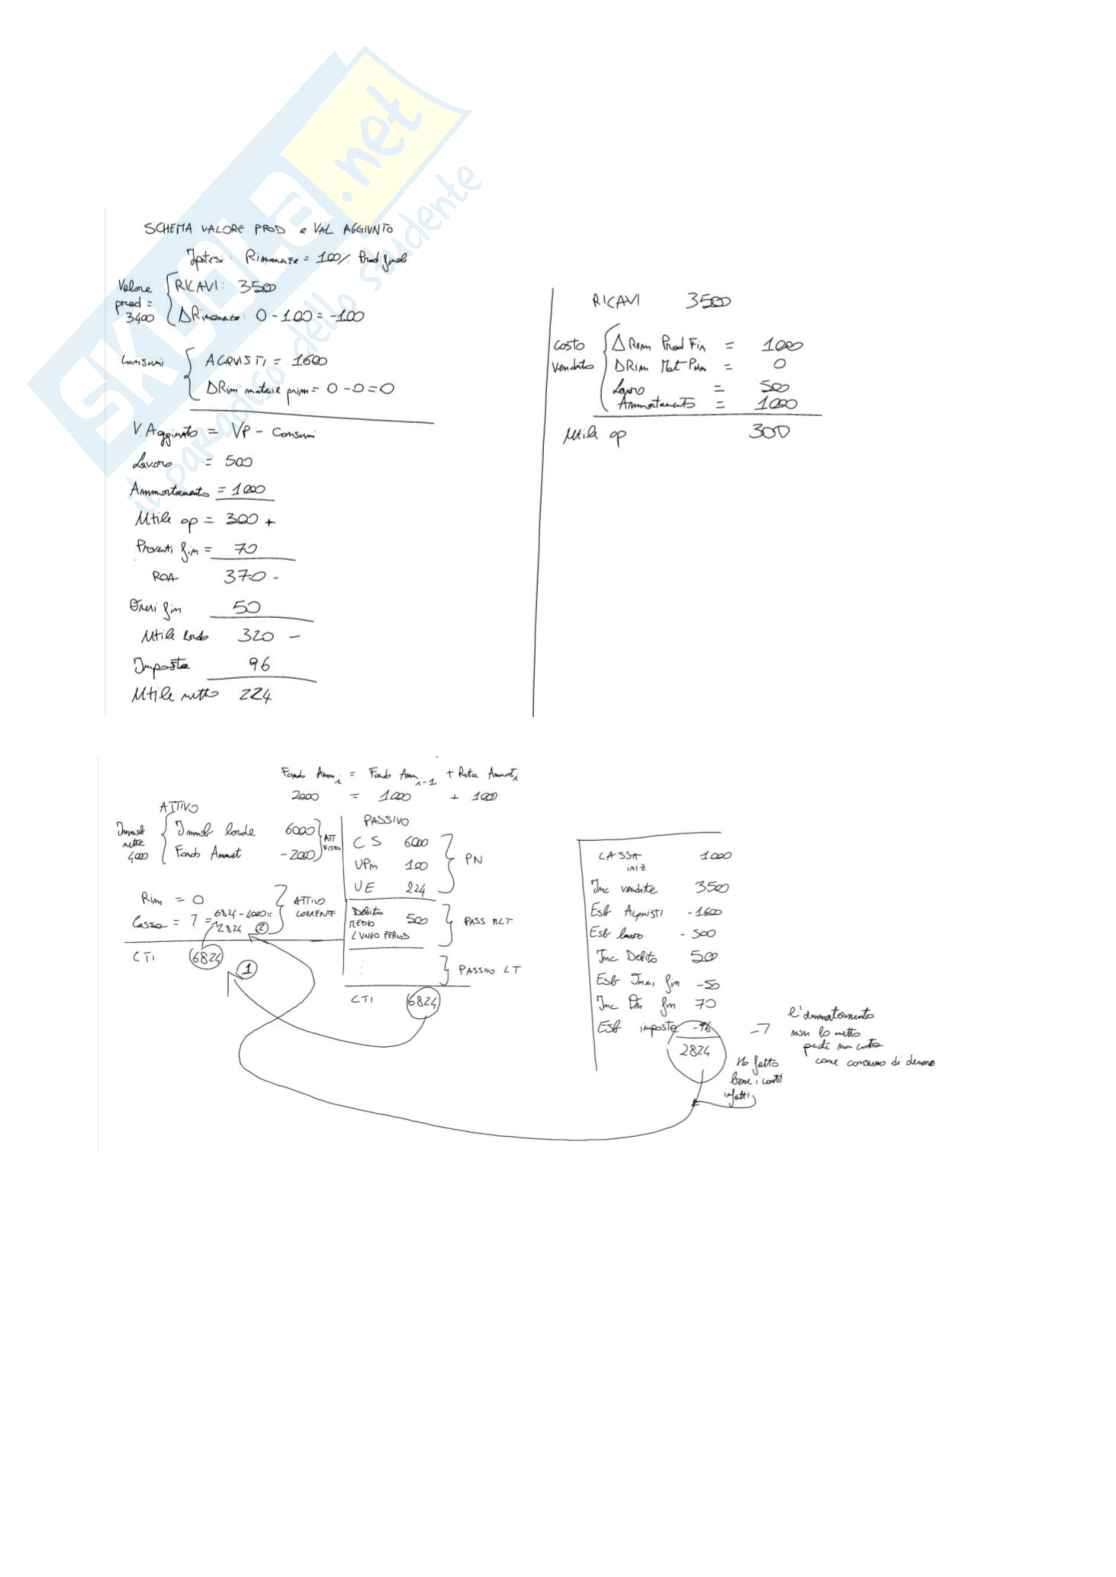 SKUOLA.net
il paradiso dello studente
SCHEMA VALORE PROD e VAL AGGIUNTO
Ipotesi: Rimanenze = 100% Prod finali
Valore prod = 3400
RICAVI: 3500
ΔRimanenze: 0 - 100 = -100
Consumi
ACQUISTI = 1600
ΔRim materie prime = 0 - 0 = 0
V Aggiunto = VP - Consumi
Lavoro = 500
Ammortamento = 1000
Utile op = 300 +
Proventi fin = 70
ROA 370 -
Oneri fin 50
Utile lordo 320 -
Imposte 96
Utile netto 224
RICAVI 3500
Costo Venduto
ΔRim Prod Fin = 1000
ΔRim Mat Prim = 0
Lavoro = 500
Ammortamento = 1000
Utile op 300
Fondo Amm i = Fondo Amm i-1 + Rata Ammort i
2000 = 1000 + 1000
ATTIVO
Immob nette 4000
Immob lorde 6000
Fondo Ammort -2000
ATT
Rim = 0
Cassa = ? = 6824 - 4000 = 2824 ②
ATTIVO CORRENTE
CTI 6824
①
PASSIVO
CS 6000
UPm 100
UE 224
PN
Debito MEDIO LUNGO 500
PASS MLT
PASSIVO CT
CTI 6824
CASSA INIZ 1000
Inc vendite 3500
Esb Acquisti -1600
Esb lavoro -500
Inc Debito 500
Esb fin -50
Inc fin 70
Esb imposte -96
2824
l'ammortamento
non lo metto
come consumo di denaro
Ho fatto
bene i conti
infatti